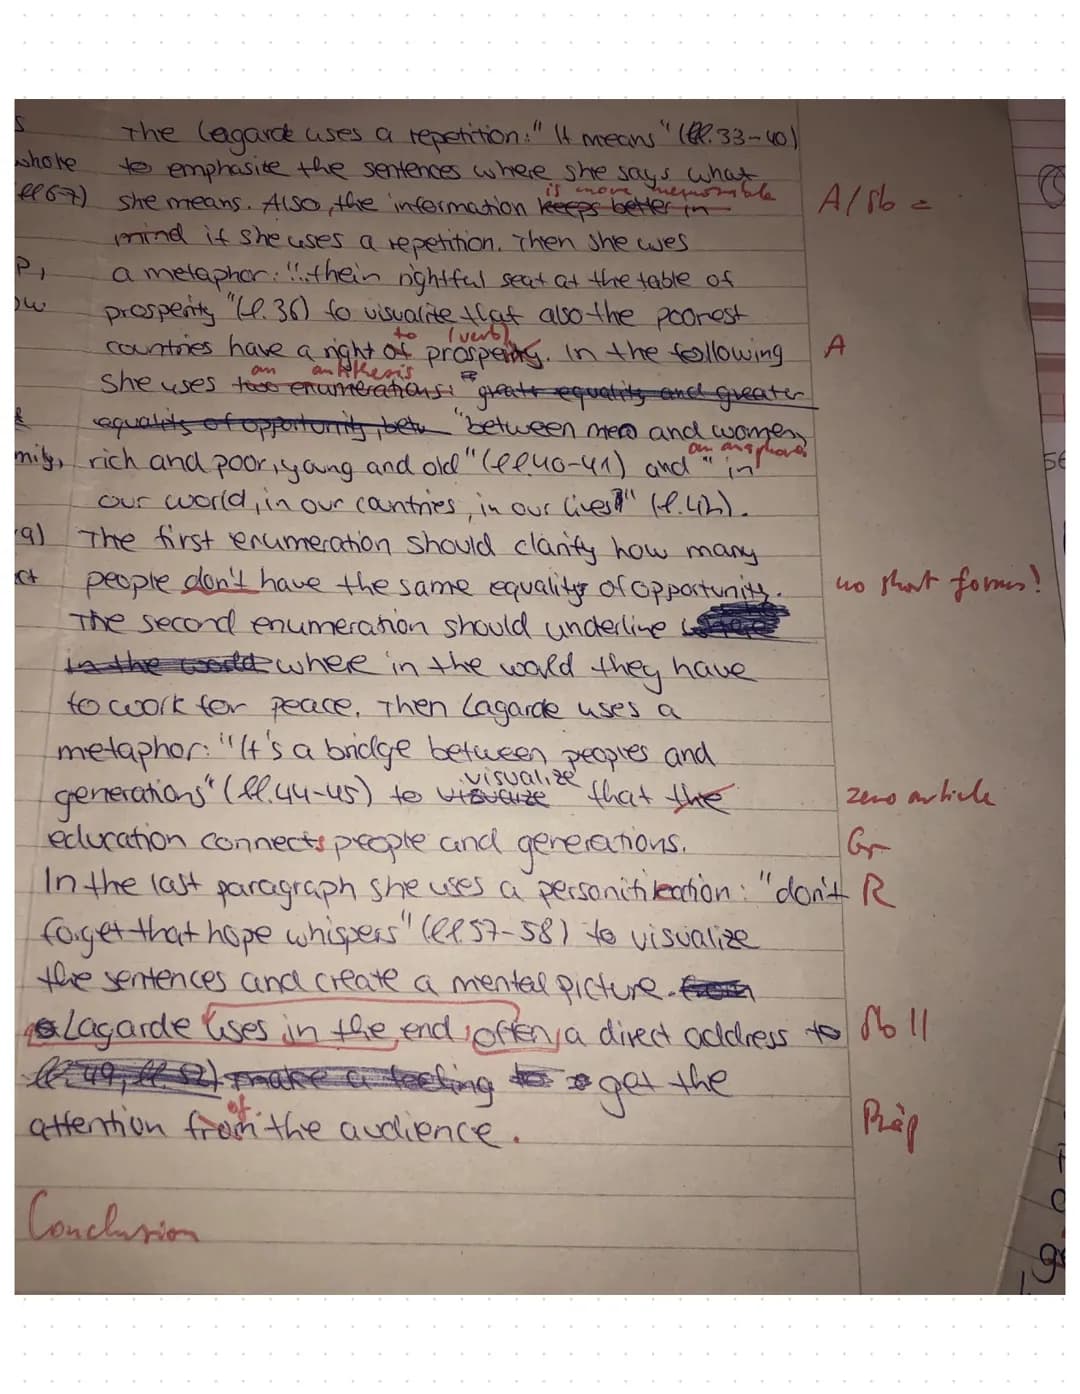 The Lagarde uses a repetition: " It means" (ll. 33-40)
whole to emphasize the sentences where she says what
is more memorable
ll 6-7) she means. Also, the information keeps better in A/Sb =
mind if she uses a repetition. Then she uses
a metaphor: "...their rightful seat at the table of
prosperity "(l. 36) to visualize that also the poorest
to (verb)
countries have a right of prospering. In the following A
an antithesis
she uses two enumerations: "great equality and greater
equality of opportunity, betw "between men and women,
an anaphora
rich and poor, young and old" (ll 40-41) and " in
our world, in our countries, in our lives" (l. 42).
The first enumeration should clarify how many
people don't have the same equality of opportunity. no short forms!
The second enumeration should underline
in the world where in the world they have
to work for peace. Then Lagarde uses a
metaphor: "It's a bridge between peoples and
visualize
generations" (ll. 44-45) to that the zero article
education connects people and generations. Gr
In the last paragraph she uses a personification: "don't R
forget that hope whispers" (ll 57-58) to visualize
the sentences and create a mental picture.
Lagarde uses in the end, often, a direct address to Sb ||
(l. 49, ll. 52) make a feeling to get the
of
attention from the audience. Präp
Conclusion